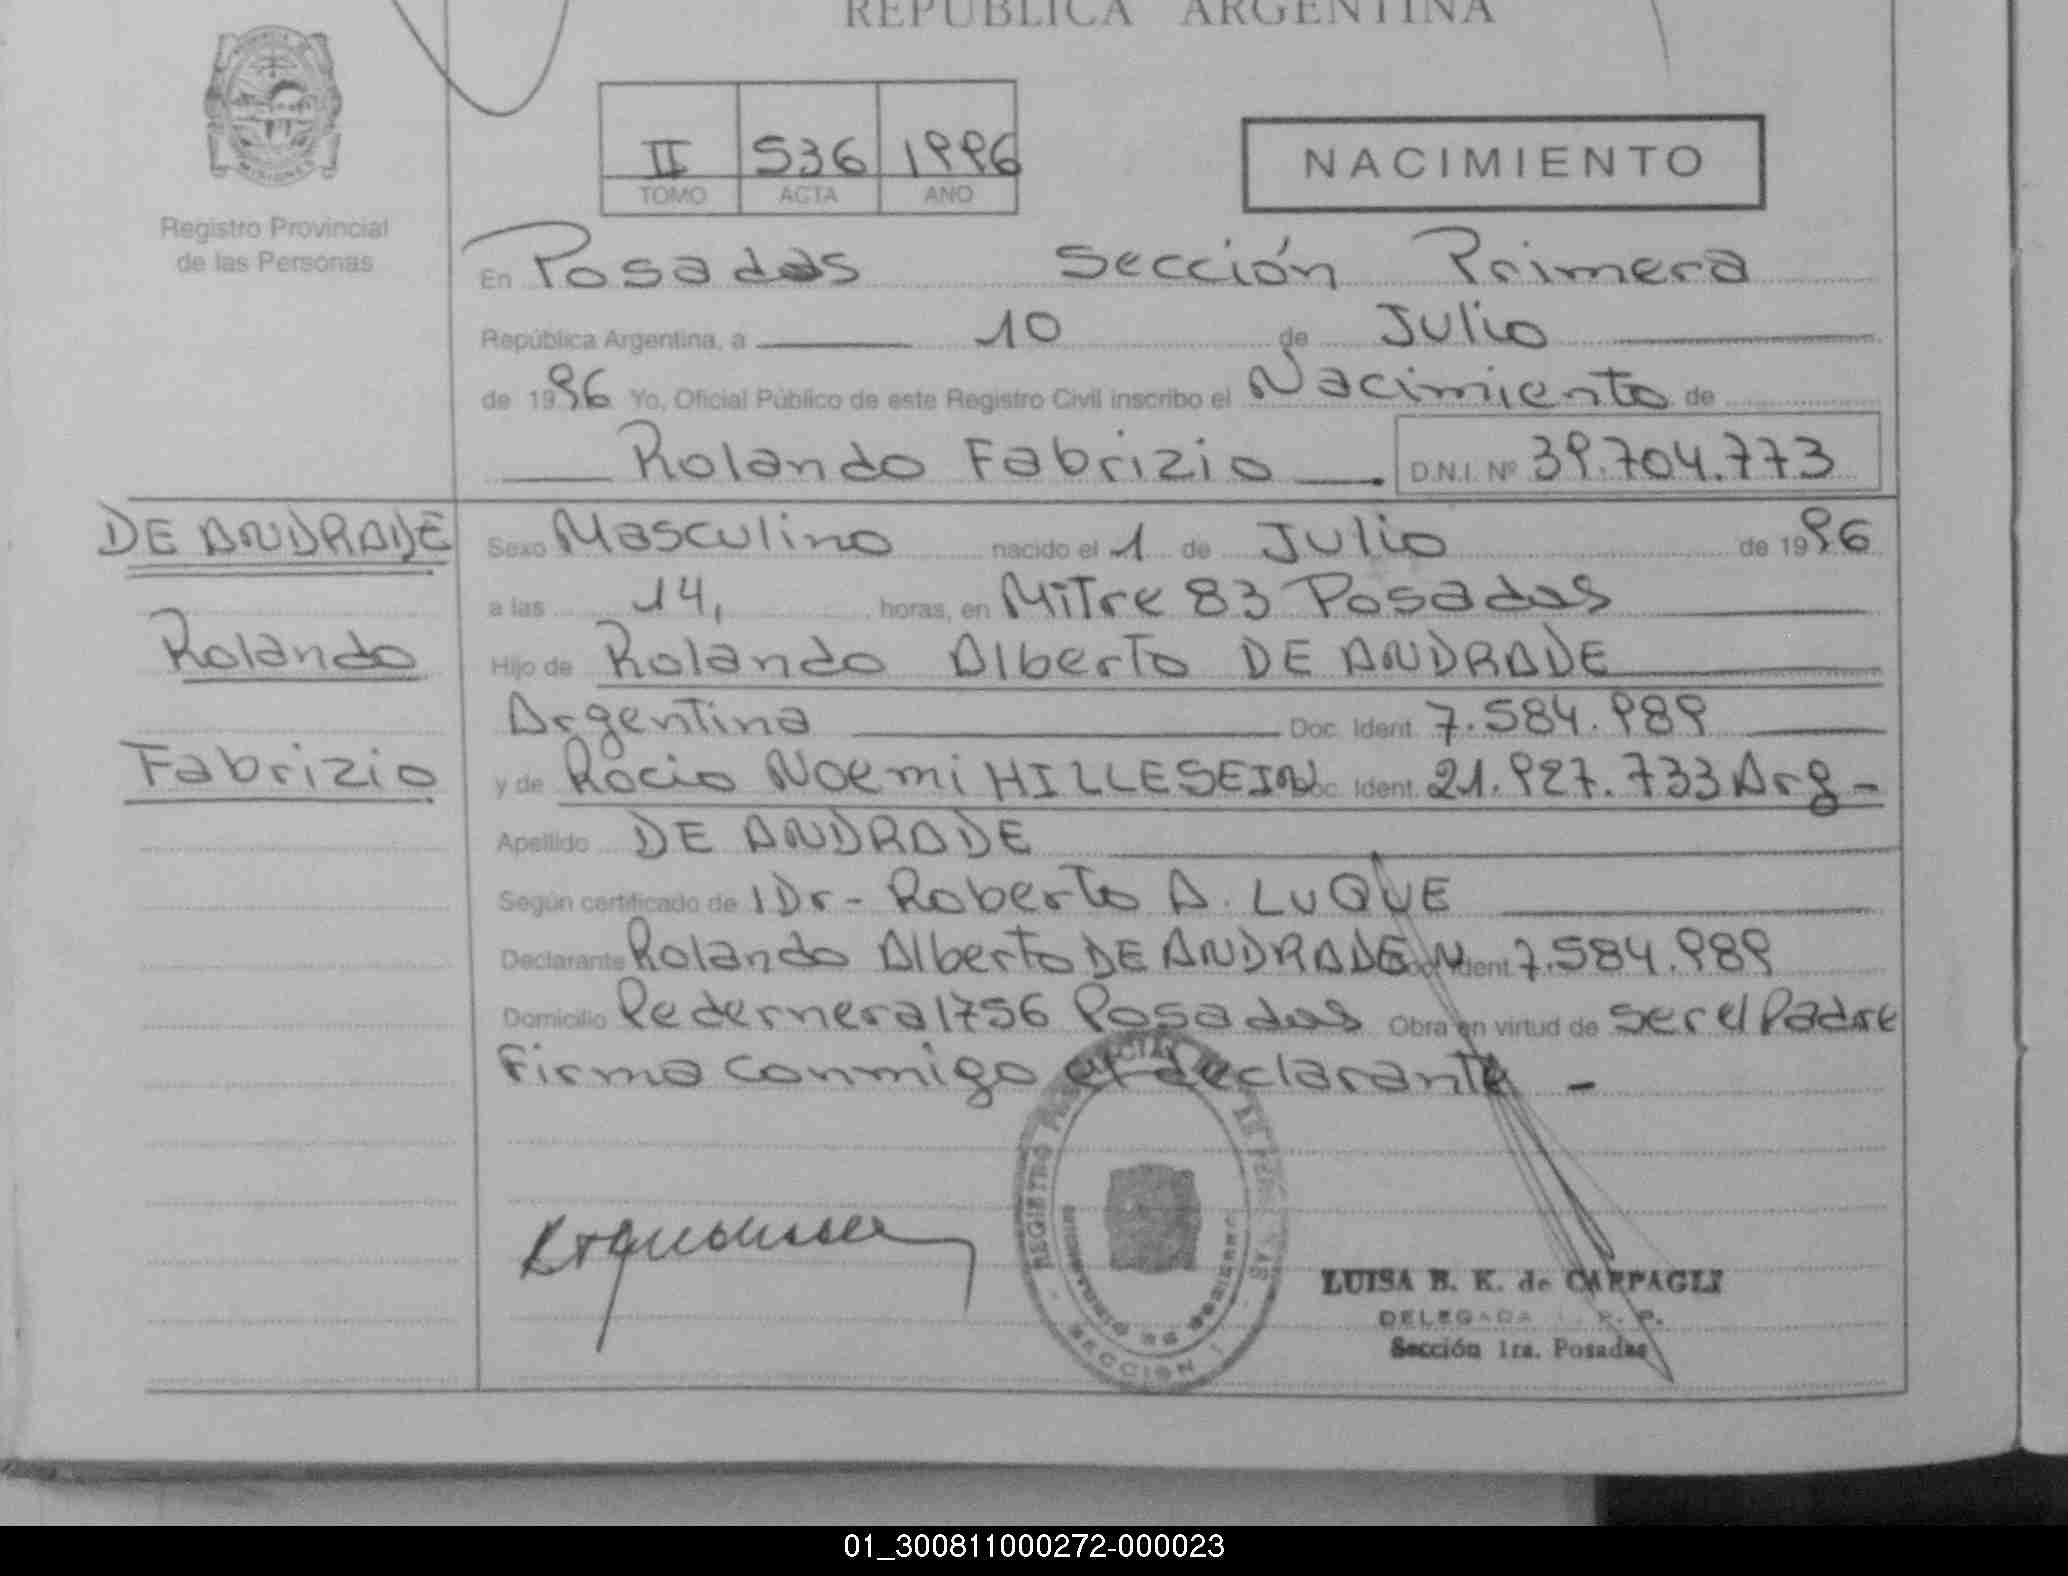 REPUBLICA ARGENTINA
PROVINCIA DE
MISIONES
Registro Provincial
de las Personas
II 536 1996
TOMO ACTA AÑO
NACIMIENTO
En Posadas Sección Primera
República Argentina, a 10 de Julio
de 1996 Yo, Oficial Público de este Registro Civil inscribo el Nacimiento de
Rolando Fabrizio. D.N.I. Nº 39.704.773
DE ANDRADE
Rolando
Fabrizio
Sexo Masculino nacido el 1 de Julio de 1996
a las 14, horas, en Mitre 83 Posadas
Hijo de Rolando Alberto DE ANDRADE
Argentina Doc. Ident. 7.584.989
y de Rocio Noemi HILLESEIN Doc. Ident. 21.927.733 Arg-
Apellido DE ANDRADE
Según certificado de l Dr- Roberto A. LUQUE
Declarante Rolando Alberto DE ANDRADE Ident. 7.584.989
Domicilio Pedernera 1756 Posadas Obra en virtud de ser el Padre
Firma conmigo el declarante -
REGISTRO PROVINCIAL DE LAS PERSONAS
SECCION 1
LUISA B. K. de CARPAGLI
DELEGADA R. P.
Sección 1ra. Posadas
01_300811000272-000023